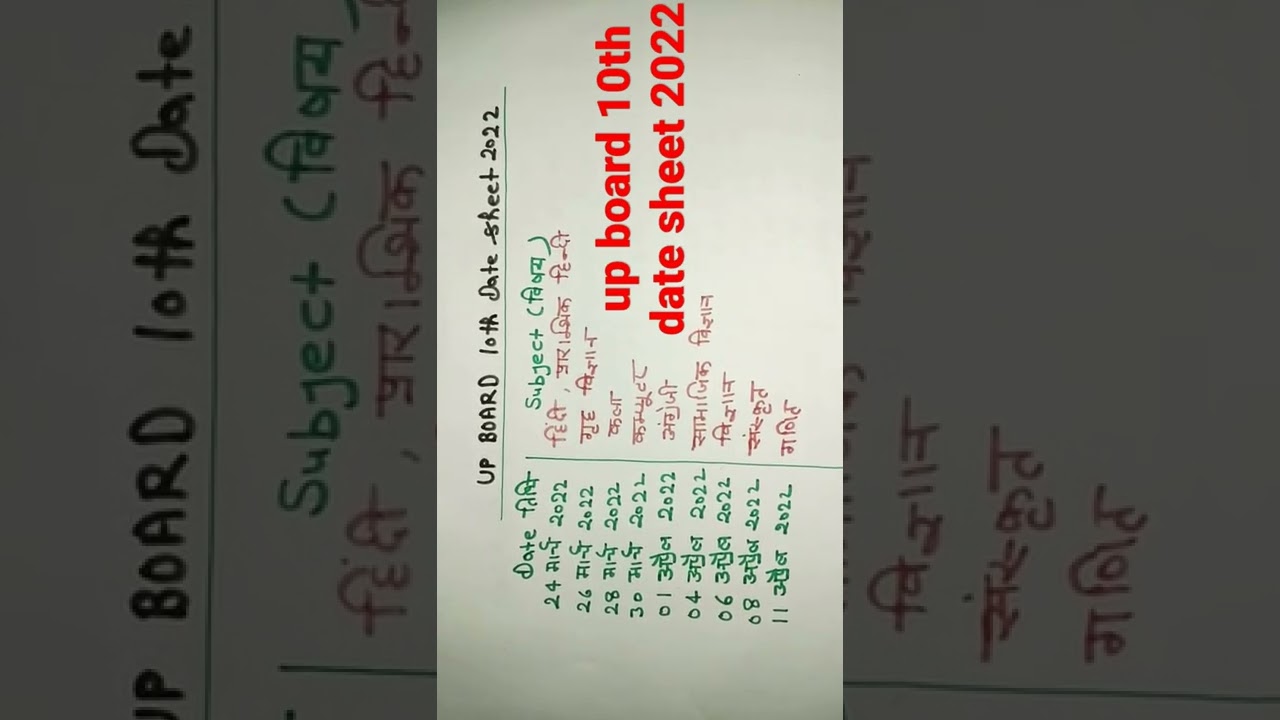 UP BOARD 10th Date sheet 2022
Date तिथि Subject (विषय)
24 मार्च 2022 हिंदी, प्रारम्भिक हिन्दी
26 मार्च 2022 गृह विज्ञान
28 मार्च 2022 कला
30 मार्च 2022 कम्प्यूटर
01 अप्रैल 2022 अंग्रेजी
04 अप्रैल 2022 सामाजिक विज्ञान
06 अप्रैल 2022 विज्ञान
08 अप्रैल 2022 संस्कृत
11 अप्रैल 2022 गणित
up board 10th
date sheet 2022
UP BOARD 10th Date
Subject (विषय)
हिंदी, प्रारम्भिक हिन्दी
विज्ञान
विज्ञान
संस्कृत
गणित